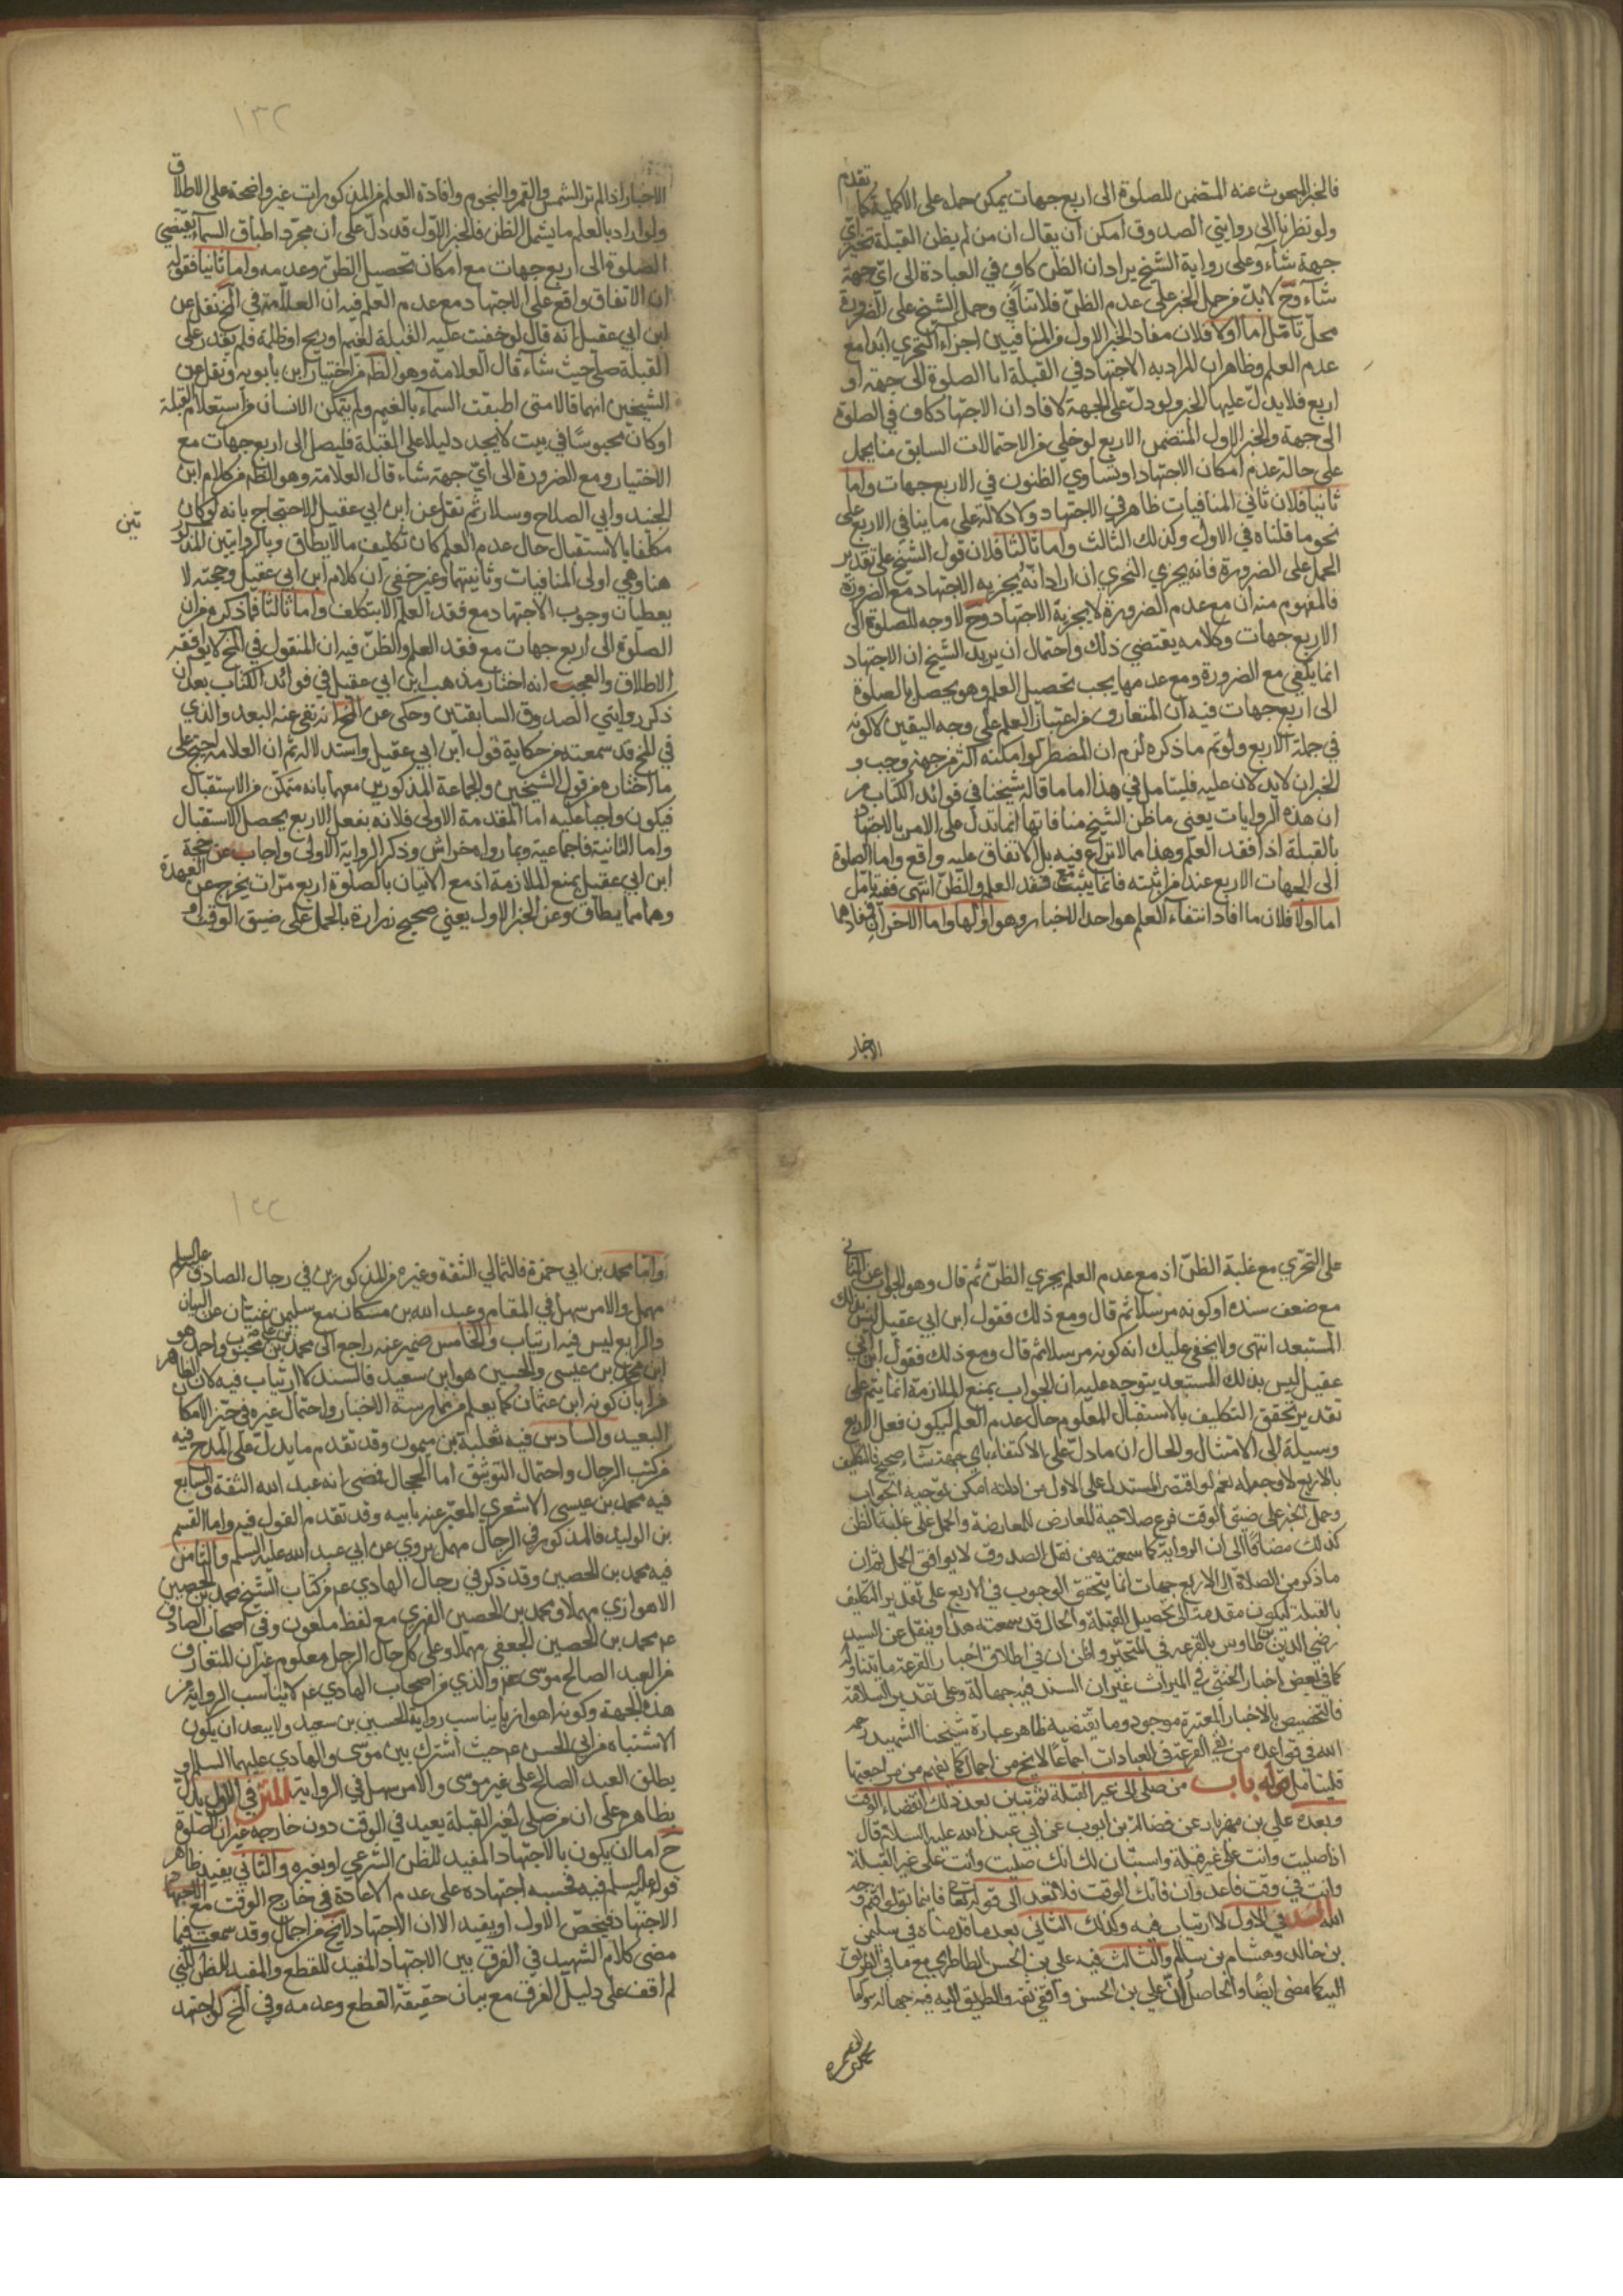 فالخبر المبحوث عنه المتضمن للصلوة الى اربع جهات يمكن حمله على الاكملية كما تقدم
ولو نظرنا الى روايتي الصدوق امكن ان يقال ان من لم يظن القبلة تخير اي
جهة شآء وعلى رواية الشيخ يراد ان الظن كاف في العبادة الى اي جهة
شآء وح لا بد من حمل الخبر على عدم الظن فلا تنافي وحمل الشيخ على الضرورة
محل تامل اما اولا فلان مفاد الخبر الاول من المنافيين اجزاء التحري ابدا مع
عدم العلم وظاهر ان المراد به الاجتهاد في القبلة اما الصلوة الى جهة او
اربع فلا يدل عليها الخبر ولو دل على الجهة لافاد ان الاجتهاد كاف في الصلوة
الى جهة والخبر الاول المتضمن الاربع لو خلي من الاحتمالات السابق منا يحمل
على حالة عدم امكان الاجتهاد او تساوي الظنون في الاربع جهات واما
ثانيا فلان ثاني المنافيات ظاهر في الاجتهاد ولا دلالة على ما ينافي الاربع على
نحو ما قلناه في الاول وكذلك الثالث واما ثالثا فلان قول الشيخ على تقدير
الحمل على الضرورة فانه يجزي التحري ان اراد انه يجزيه الاجتهاد مع الضرورة
فالمفهوم منه ان مع عدم الضرورة لا يجزيه الاجتهاد وح لا وجه للصلوة الى
الاربع جهات وكلامه يقتضي ذلك واحتمال ان يريد الشيخ ان الاجتهاد
انما يكفي مع الضرورة ومع عدمها يجب تحصيل العلم وهو يحصل بالصلوة
الى اربع جهات فيه ان المتعارف من اعتبار العلم على وجه اليقين لا كونه
في جملة الاربع ولو تم ما ذكره لزم ان المضطر لو امكنه اكثر من جهة وجب و
الخبران لا يدلان عليه فليتامل في هذا اما ما قاله شيخنا في فوائد الكتاب من
ان هذه الروايات يعني ما ظن الشيخ منافاتها انما تدل على الامر بالاجتهاد
بالقبلة اذا فقد العلم وهذا مما لا نزاع فيه بل الاتفاق عليه واقع واما الصلوة
الى الجهات الاربع عند من اثبته فانما يثبت مع فقد العلم والظن انتهى ففيه تامل
اما اولا فلان ما افاد انتفاء العلم هو احد الاخبار وهو اولها واما الاخران فمفادهما
الاخبار
١٣٢
الاخبار اذا لم تر الشمس والقمر والنجوم وافادة العلم من المذكورات غير واضحة على الاطلاق
ولو اراد بالعلم ما يشمل الظن فالخبر الاول قد دل على ان مجرد اطباق السمآء يقتضي
الصلوة الى اربع جهات مع امكان تحصيل الظن وعدمه واما ثانيا فقوله
ان الاتفاق واقع على الاجتهاد مع عدم العلم فيه ان العلامة في المخ نقل عن
ابن ابي عقيل انه قال لو خفيت عليه القبلة لغيم او ريح او ظلمة فلم يقدر على
القبلة صلى حيث شآء قال العلامة وهو الظم من اختيار ابن بابويه ونقل عن
الشيخين انهما قالا متى اطبقت السمآء بالغيم ولم يتمكن الانسان من استعلام القبلة
او كان محبوسا في بيت لا يجد دليلا على القبلة فليصل الى اربع جهات مع
الاختيار ومع الضرورة الى اي جهة شاء قال العلامة وهو الظم من كلام ابن
الجنيد وابي الصلاح وسلار ثم نقل عن ابن ابي عقيل الاحتجاج بانه لو كان
مكلفا بالاستقبال حال عدم العلم كان تكليف ما لا يطاق وبالروايتين المذكور
تين
هنا وهي اولى المنافيات وثانيتهما وغير خفي ان كلام ابن ابي عقيل وحجته لا
يعطيان وجوب الاجتهاد مع فقد العلم الا بتكلف واما ثالثا فما ذكره من ان
الصلوة الى اربع جهات مع فقد العلم والظن فيه ان المنقول في المخ لا يوافقه
الاطلاق والعجب انه اختار مذهب ابن ابي عقيل في فوائد الكتاب بعد ان
ذكر روايتي الصدوق السابقتين وحكى عن المخ انه نفى عنه البعد والذي
في المخ قد سمعته من حكاية قول ابن ابي عقيل واستدلاله ثم ان العلامة احتج على
ما اختاره من قول الشيخين والجماعة المذكورين معهما بانه متمكن من الاستقبال
فيكون واجبا عليه اما المقدمة الاولى فلانه بفعل الاربع يحصل الاستقبال
واما الثانية فاجماعية وبما رواه خراش وذكر الرواية الاولى واجاب عن حجة
ابن ابي عقيل بمنع الملازمة اذ مع الاتيان بالصلوة اربع مرات يخرج عن العهدة
وهما مما يطاق وعن الخبر الاول يعني صحيح زرارة بالحمل على ضيق الوقت او
على التحري مع غلبة الظن اذ مع عدم العلم يجزي الظن ثم قال وهو الجواب عن الثاني
مع ضعف سنده او كونه مرسلا ثم قال ومع ذلك فقول ابن ابي عقيل ليس بذلك
المستبعد انتهى ولا يخفى عليك انه كونه مرسلا ثم قال ومع ذلك فقول ابن ابي
عقيل ليس بذلك المستبعد يتوجه عليه ان الجواب بمنع الملازمة انما يتم على
تقدير تحقق التكليف بالاستقبال المعلوم حال عدم العلم ليكون فعل الاربع
وسيلة الى الامتثال والحال ان ما دل على الاكتفاء باي جهة شاء صحيح فالتكليف
بالاربع لا وجه له نعم لو اقتصر المستدل على الاول من ادلته امكن توجيه الجواب
وحمل الخبر على ضيق الوقت فرع صلاحية المعارض للمعارضة والحمل على غلبة الظن
كذلك مضافا الى ان الرواية كما سمعته من نقل الصدوق لا يوافق الحمل ثم ان
ما ذكر من الصلاة الى الاربع جهات انما يتحقق الوجوب في الاربع على تقدير التكليف
بالقبلة ليكون مقدمة الى تحصيل القبلة والحال قد سمعته هذا وينقل عن السيد
رضي الدين بن طاوس بالقرعة في المتحير واظن ان في اطلاق اخبار القرعة ما يتناوله
كما في بعض اخبار الخنثى في الميراث غير ان السند فيه جهالة وعلى تقدير السلامة
فالتخصيص بالاخبار المعتبرة موجود وما يقتضيه ظاهر عبارة شيخنا الشهيد رحمه
الله في قواعده من نفي القرعة في العبادات اجماعا لا يخ من اجمال كما يفهم من مراجعتها
فليتامل قوله باب من صلى الى غير القبلة ثم تبين بعد ذلك انقضاء الوقت
وبعده علي بن مهزيار عن فضالة بن ايوب عن ابي عبد الله عليه السلام قال
اذا صليت وانت على غير قبلة واستبان لك انك صليت وانت على غير القبلة
وانت في وقت فاعد وان فاتك الوقت فلا تعد الى قوله تعالى فاينما تولوا فثم وجه
الله السند في الاول لا ارتياب فيه وكذلك الثاني بعد ما قدمناه في سليمن
بن خالد وهشام بن سالم والثالث فيه علي بن الحسن الطاطري مع ما في الطريق
اليه كما مضى ايضا والحاصل ان علي بن الحسن واقفي ثقة والطريق اليه فيه جهالة
١٣٣
واما محمد بن ابي حمزة فالثمالي الثقة وغيره من المذكورين في رجال الصادق عليه السلام
مهمل والامر سهل في المقام وعبد الله بن مسكان مع سليمن غنيان عن البيان
والرابع ليس فيه ارتياب والخامس ضمير عنه راجع الى محمد بن علي بن محبوب واحمد هو
ابن محمد بن عيسى والحسين هو ابن سعيد فالسند لا ارتياب فيه لان الظاهر
من ابان كونه ابن عثمان كما يعلم من ممارسة الاخبار واحتمال غيره في حيز الامكان
البعيد والسادس فيه ثعلبة بن ميمون وقد تقدم ما يدل على المدح فيه
من كتب الرجال واحتمال التوثيق اما الحجال فمضى انه عبد الله الثقة والسابع
فيه محمد بن عيسى الاشعري المعبر عنه بابيه وقد تقدم القول فيه واما القسم
بن الوليد فالمذكور في الرجال مهمل يروي عن ابي عبد الله عليه السلم والثامن
فيه محمد بن الحصين وقد ذكر في رجال الهادي عم من كتاب الشيخ محمد بن الحصين
الاهوازي مهملا ومحمد بن الحصين الفهري مع لفظ ملعون وفي اصحاب الصادق
عم محمد بن الحصين الجعفي مهملا وعلى كل حال الرجل معلوم غير ان المتعارف
من العبد الصالح موسى عم والذي من اصحاب الهادي عم لا يناسب الرواية من
هذه الجهة وكونه اهوازيا يناسب رواية الحسين بن سعيد ولا يبعد ان يكون
الاشتباه من ابي الحسن عم حيث اشترك بين موسى والهادي عليهما السلام او
يطلق العبد الصالح على غير موسى والامر سهل في الرواية المتن في الاول يدل
بظاهره على ان من صلى لغير القبلة يعيد في الوقت دون خارجه غير ان الصلوة
ح اما ان يكون بالاجتهاد المفيد للظن الشرعي او بغيره والثاني يفيد بظاهر
قوله عليه السلم فيه فحسبه اجتهاده على عدم الاعادة في خارج الوقت مع الاجتهاد
الاجتهاد فيخص الاول او يقيد الا ان الاجتهاد لا يخ من اجمال وقد سمعت فيما
مضى كلام الشهيد في الفرق بين الاجتهاد المفيد للقطع والمفيد للظن لكني
لم اقف على دليل الفرق مع بيان حقيقة القطع وعدمه وفي المخ لو اجتهد